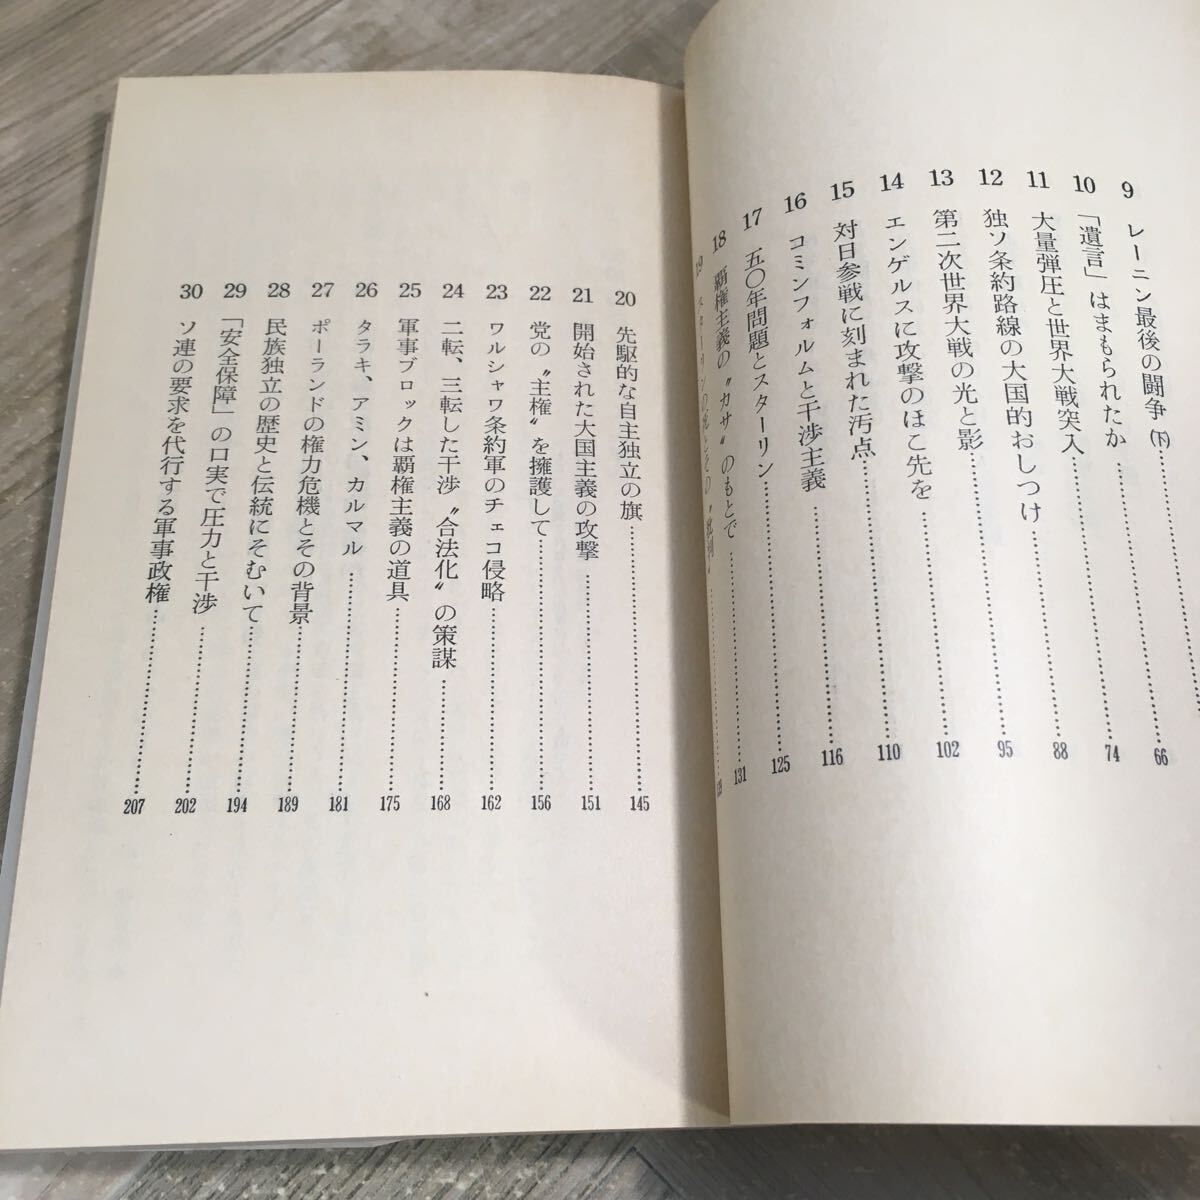 9 レーニン最後の闘争(下)……66
10 「遺言」はまもられたか……74
11 大量弾圧と世界大戦突入……88
12 独ソ条約路線の大国的おしつけ……95
13 第二次世界大戦の光と影……102
14 エンゲルスに攻撃のほこ先を……110
15 対日参戦に刻まれた汚点……116
16 コミンフォルムと干渉主義……125
17 五〇年問題とスターリン……131
18 覇権主義の〝カサ〟のもとで……
19 スターリンの死とその〝批判〟……
20 先駆的な自主独立の旗……145
21 開始された大国主義の攻撃……151
22 党の〝主権〟を擁護して……156
23 ワルシャワ条約軍のチェコ侵略……162
24 二転、三転した干渉〝合法化〟の策謀……168
25 軍事ブロックは覇権主義の道具……175
26 タラキ、アミン、カルマル……181
27 ポーランドの権力危機とその背景……189
28 民族独立の歴史と伝統にそむいて……194
29 「安全保障」の口実で圧力と干渉……202
30 ソ連の要求を代行する軍事政権……207